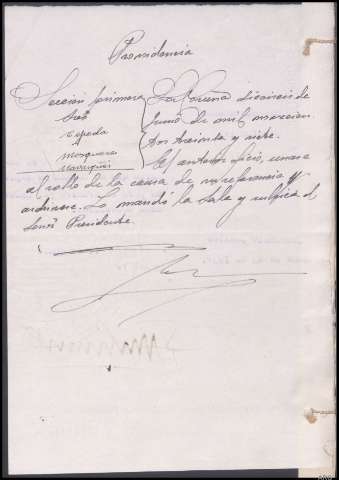 Providencia
Sección primera
Sres
Cepeda
Mosquera
La Coruña dieciseis de
Junio de mil novecien-
tos treinta y siete.
El anterior oficio, unase
al rollo de la causa de su referencia y
archivese. Lo mandó la Sala y rubrica el
Señor Presidente.